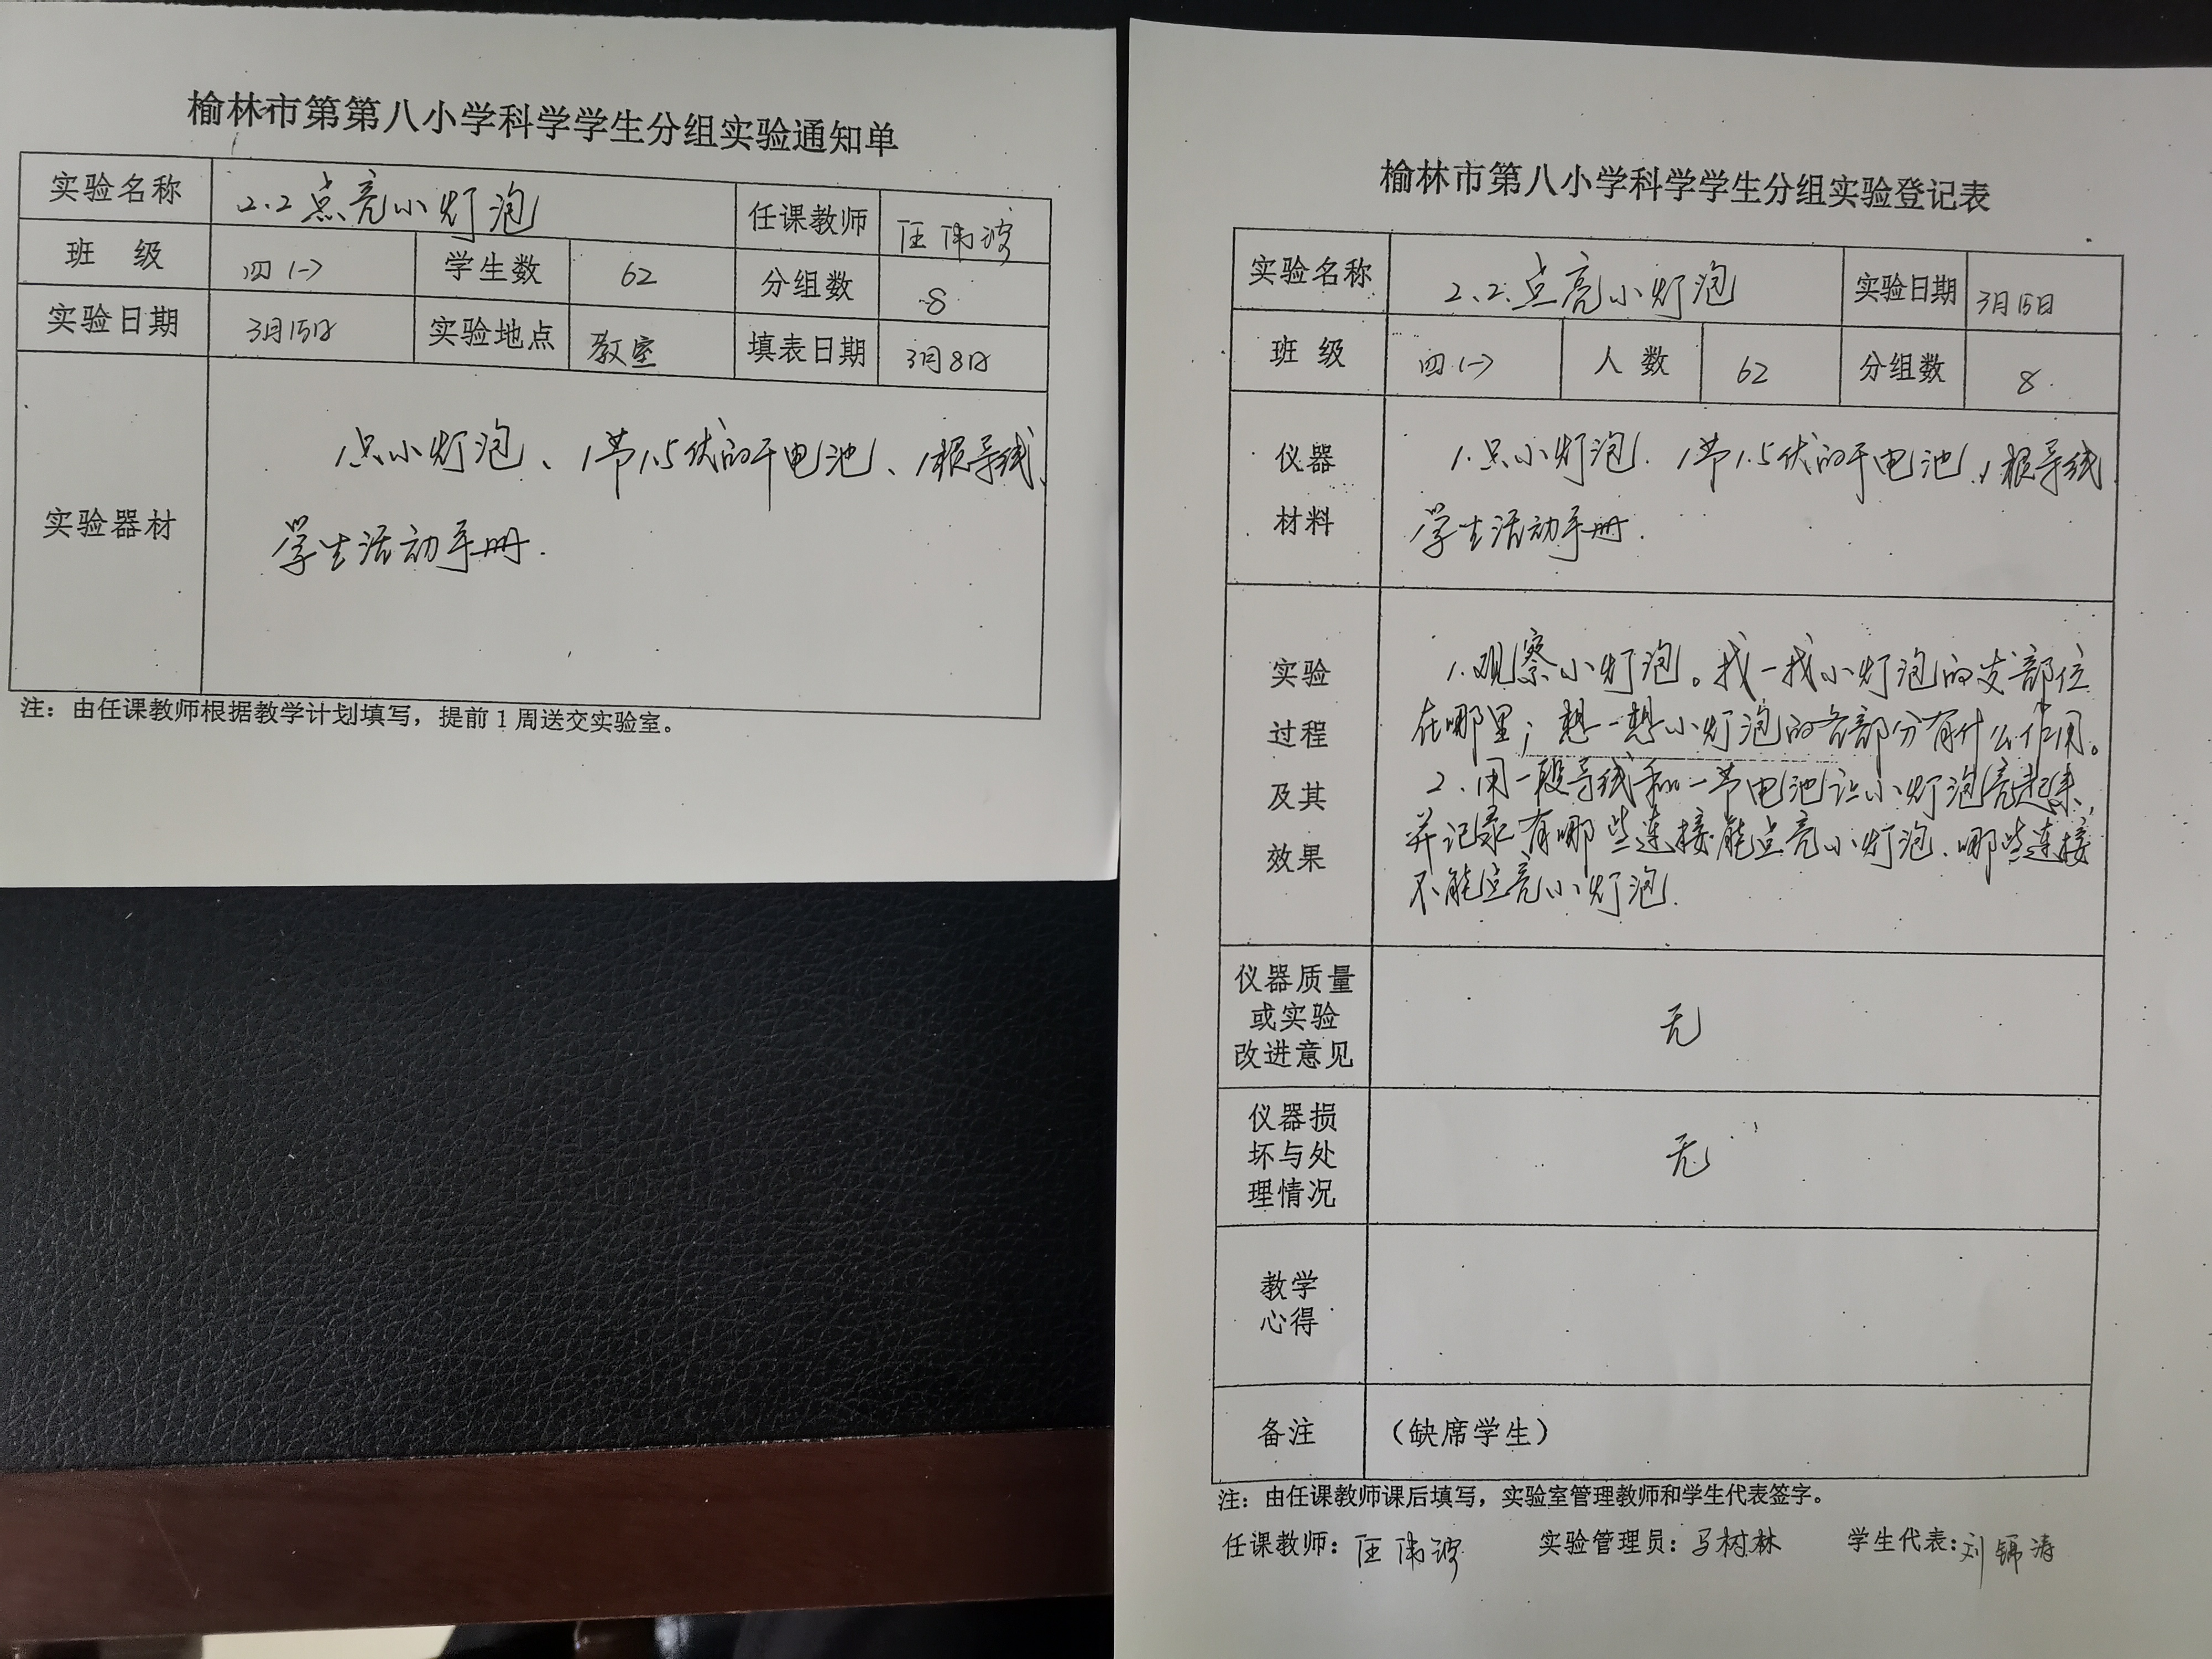 榆林市第第八小学科学学生分组实验通知单
实验名称 2.2点亮小灯泡 任课教师 汪伟波
班 级 四(一) 学生数 62 分组数 8
实验日期 3月15日 实验地点 教室 填表日期 3月8日
实验器材
1只小灯泡、1节1.5伏的干电池、1根导线、
学生活动手册.
注：由任课教师根据教学计划填写，提前1周送交实验室。
榆林市第八小学科学学生分组实验登记表
实验名称 2.2.点亮小灯泡 实验日期 3月15日
班 级 四(一) 人 数 62 分组数 8
仪器
材料
1.只小灯泡.1节1.5伏的干电池、1根导线
学生活动手册.
实验
过程
及其
效果
1.观察小灯泡。找一找小灯泡的发部位
在哪里；想一想小灯泡的各部分有什么作用。
2.用一段导线和一节电池让小灯泡亮起来，
并记录有哪些连接能点亮小灯泡、哪些连接
不能点亮小灯泡.
仪器质量
或实验
改进意见
无
仪器损
坏与处
理情况
无
教学
心得
备注 （缺席学生）
注：由任课教师课后填写，实验室管理教师和学生代表签字。
任课教师：汪伟波 实验管理员：马树林 学生代表：刘锦涛